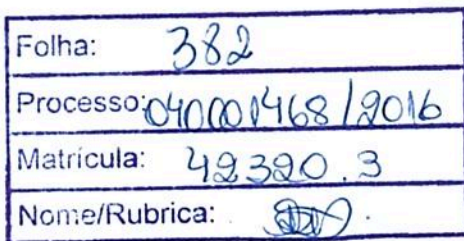 Folha: 382
Processo: 040001468/2016
Matrícula: 42320.3
Nome/Rubrica: